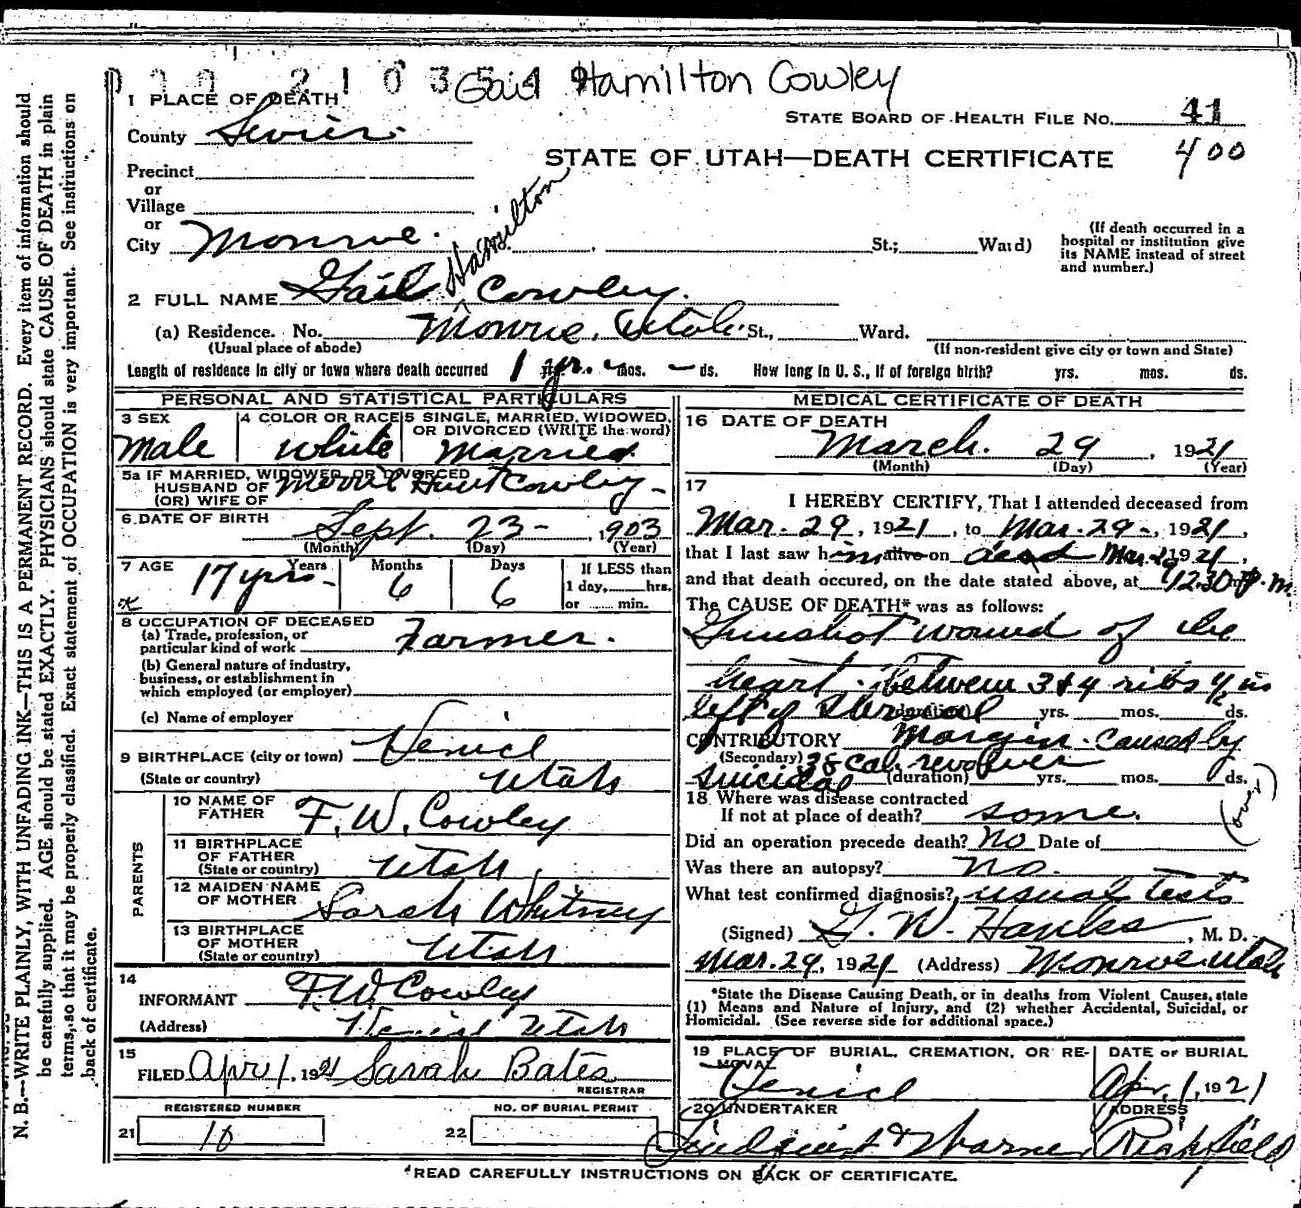 Gail Hamilton Cowley
1 PLACE OF DEATH
STATE BOARD OF HEALTH FILE NO. 41
County Sevier.
STATE OF UTAH—DEATH CERTIFICATE 400
Precinct
or
Village
or
City Monroe. St.; Ward)
(If death occurred in a
hospital or institution give
its NAME instead of street
and number.)
2 FULL NAME Gail Hamilton Cowley.
(a) Residence. No. Monroe, Utah. St., Ward.
(Usual place of abode) (If non-resident give city or town and State)
Length of residence in city or town where death occurred 1 yr. - mos. - ds. How long in U. S., if of foreign birth? yrs. mos. ds.
PERSONAL AND STATISTICAL PARTICULARS
3 SEX 4 COLOR OR RACE 5 SINGLE, MARRIED, WIDOWED,
OR DIVORCED (WRITE the word)
Male White Married
5a IF MARRIED, WIDOWED, OR DIVORCED
HUSBAND OF Cowley-
(OR) WIFE OF
6. DATE OF BIRTH Sept. 23- 1903
(Month) (Day) (Year)
7 AGE Years Months Days If LESS than
17 yrs- 6 6 1 day, hrs.
or min.
8 OCCUPATION OF DECEASED
(a) Trade, profession, or
particular kind of work Farmer.
(b) General nature of industry,
business, or establishment in
which employed (or employer)
(c) Name of employer
9 BIRTHPLACE (city or town) Venice
(State or country) Utah
PARENTS
10 NAME OF
FATHER F. W. Cowley
11 BIRTHPLACE
OF FATHER
(State or country) Utah
12 MAIDEN NAME
OF MOTHER Sarah Whitney
13 BIRTHPLACE
OF MOTHER
(State or country) Utah
14
INFORMANT F. W. Cowley
(Address) Venice Utah
15
FILED Apr 1, 1921 Sarah Bates
REGISTRAR
REGISTERED NUMBER NO. OF BURIAL PERMIT
21 10 22
MEDICAL CERTIFICATE OF DEATH
16 DATE OF DEATH
March. 29, 1921
(Month) (Day) (Year)
17
I HEREBY CERTIFY, That I attended deceased from
Mar. 29, 1921, to Mar. 29-, 1921,
that I last saw him alive on dead Mar. 29 1921,
and that death occured, on the date stated above, at 12.30 P. m.
The CAUSE OF DEATH* was as follows:
Gunshot wound of the
heart. between 3 & 4 ribs 1/2 in
left of Sternal
(duration) yrs. mos. ds.
CONTRIBUTORY Margin. caused by
(Secondary) 38 cal. revolver
suicidal (duration) yrs. mos. ds.
(over)
18 Where was disease contracted
If not at place of death? same.
Did an operation precede death? No Date of
Was there an autopsy? no.
What test confirmed diagnosis? usual tests
(Signed) G. W. Hanks, M. D.
Mar. 29, 1921 (Address) Monroe Utah
*State the Disease Causing Death, or in deaths from Violent Causes, state
(1) Means and Nature of Injury, and (2) whether Accidental, Suicidal, or
Homicidal. (See reverse side for additional space.)
19 PLACE OF BURIAL, CREMATION, OR RE-
MOVAL DATE OF BURIAL
Venice Apr. 1, 1921
20 UNDERTAKER ADDRESS
& Richfield
*READ CAREFULLY INSTRUCTIONS ON BACK OF CERTIFICATE.
N. B.—WRITE PLAINLY, WITH UNFADING INK—THIS IS A PERMANENT RECORD. Every item of information should
be carefully supplied. AGE should be stated EXACTLY. PHYSICIANS should state CAUSE OF DEATH in plain
terms, so that it may be properly classified. Exact statement of OCCUPATION is very important. See instructions on
back of certificate.